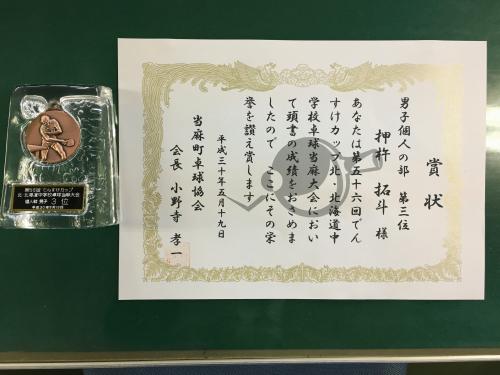 賞状
男子個人の部　第三位
押杵　拓斗　様
あなたは第五十六回でん
すけカップ北・北海道中
学校卓球当麻大会におい
て頭書の成績をおさめま
したので　ここにその栄
誉を讃え賞します
平成三十年五月十九日
当麻町卓球協会
会長　小野寺　孝一
第56回 でんすけカップ
北・北海道中学校卓球当麻大会
個人戦 男子 3 位
平成30年5月19日